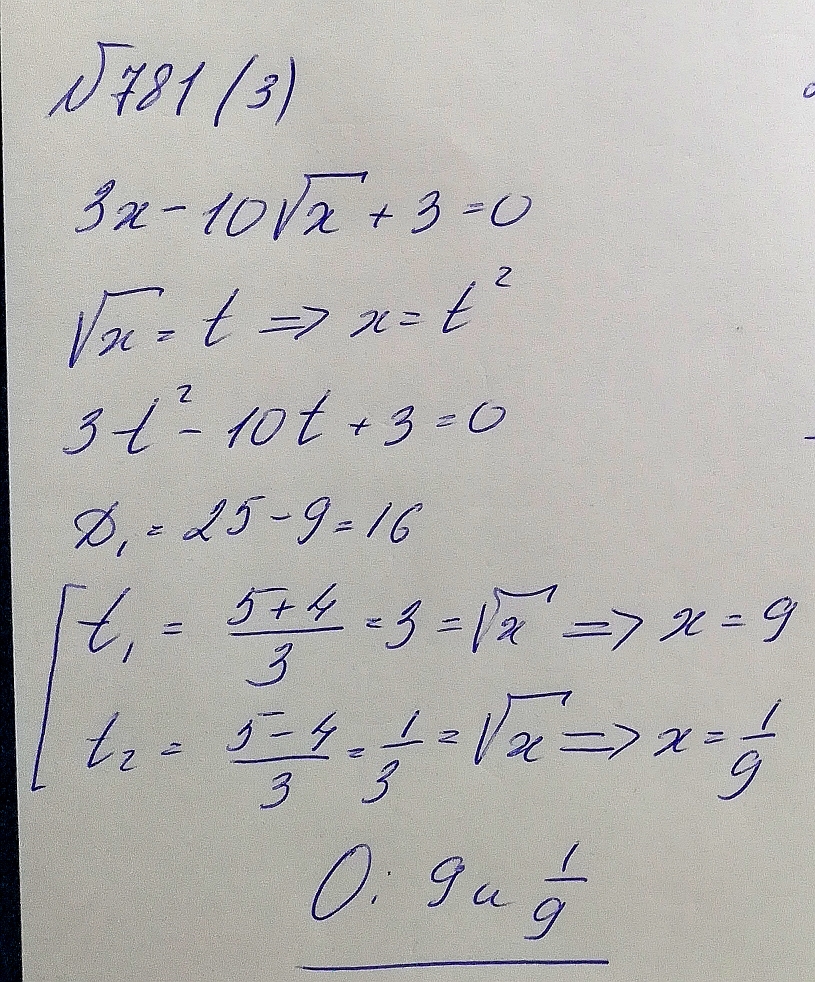 №781 (3)
3x - 10√x + 3 = 0
√x = t => x = t²
3t² - 10t + 3 = 0
D₁ = 25 - 9 = 16
[ t₁ = (5+4)/3 = 3 = √x => x = 9
t₂ = (5-4)/3 = 1/3 = √x => x = 1/9
О: 9 и 1/9